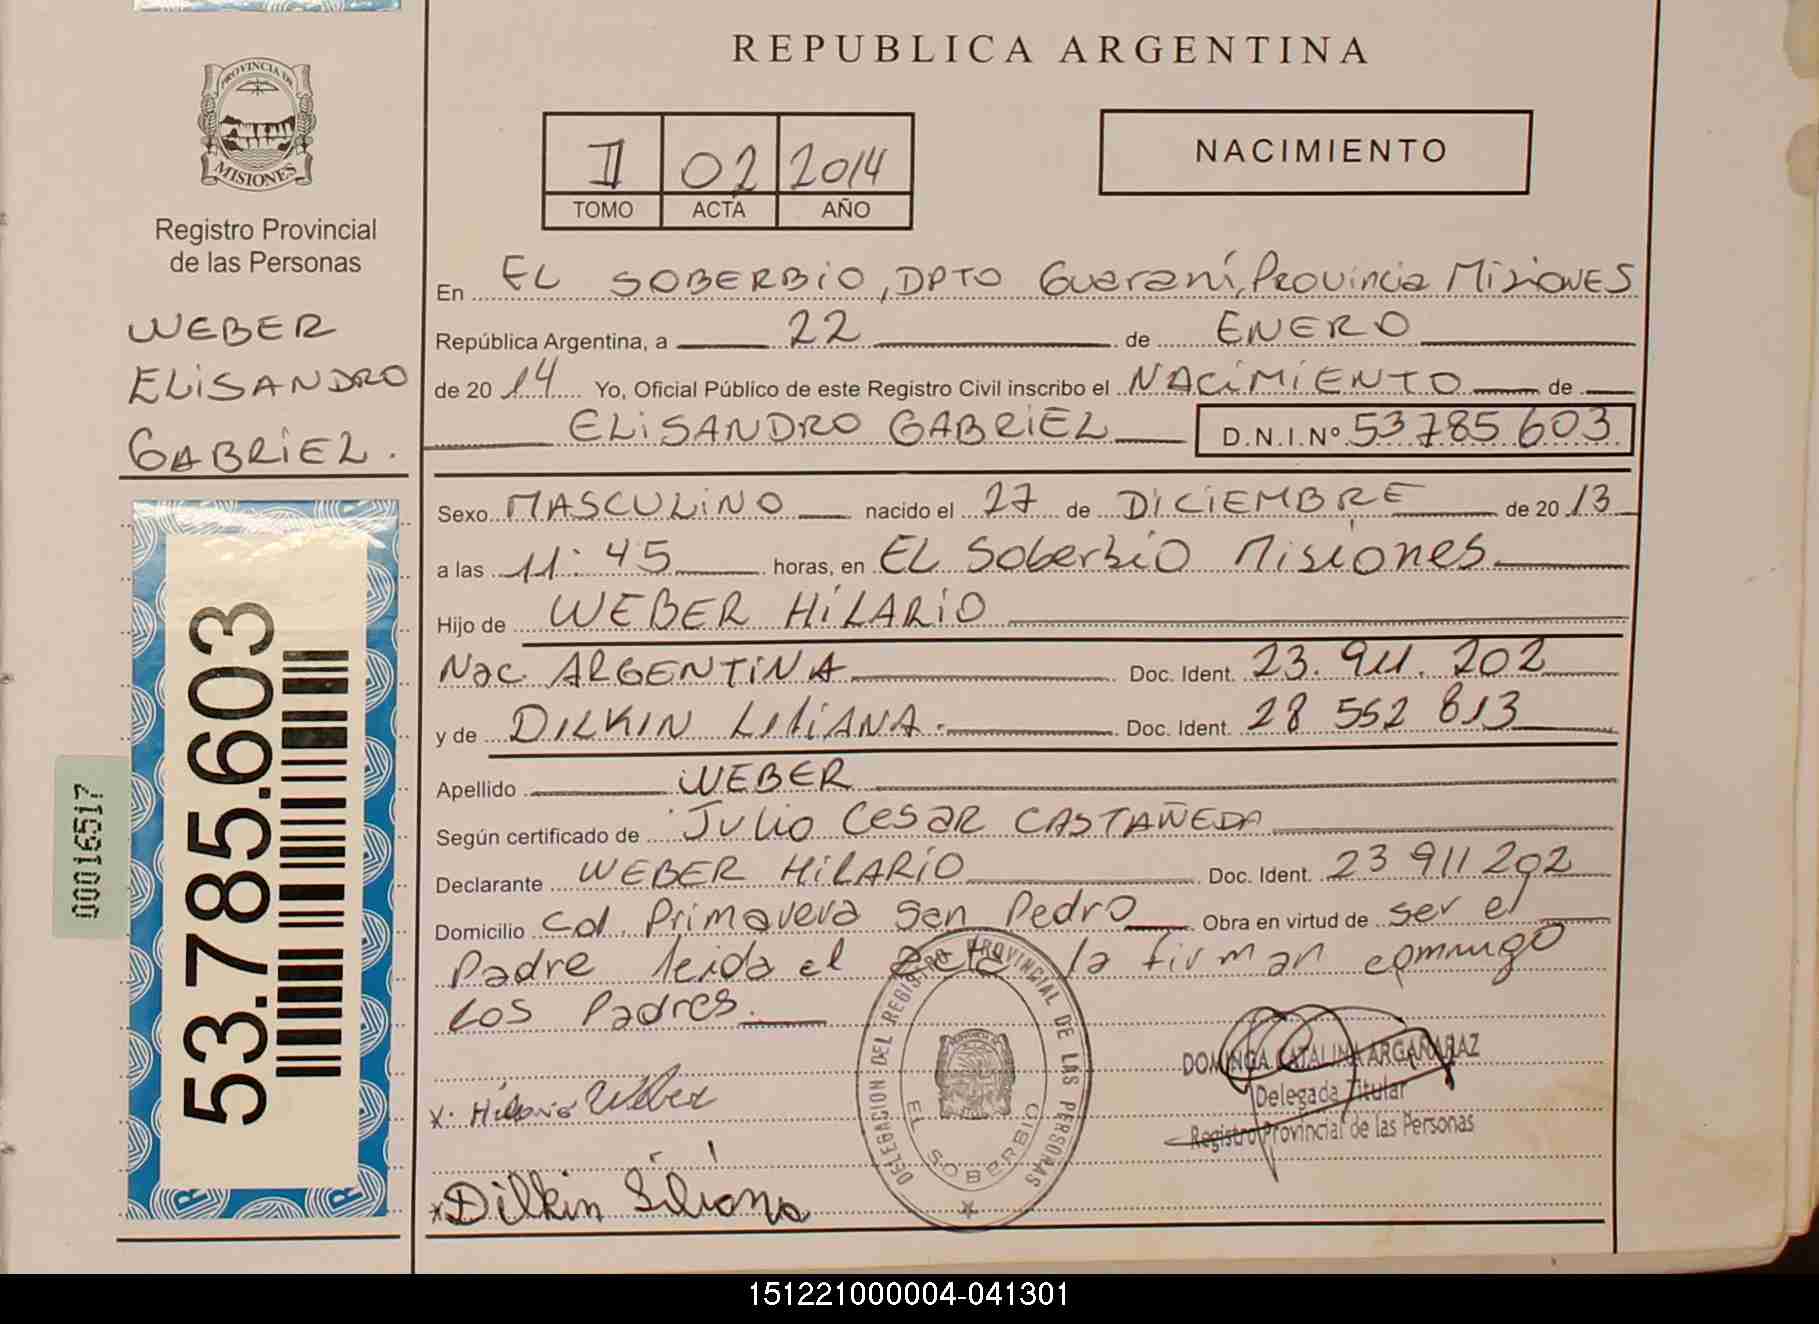 REPUBLICA ARGENTINA
PROVINCIA DE
MISIONES
Registro Provincial
de las Personas
WEBER
ELISANDRO
GABRIEL.
53.785.603
00016517
I 02 2014
TOMO ACTA AÑO
NACIMIENTO
En EL SOBERBIO, DPTO Guaraní, Provincia Misiones
República Argentina, a 22 de ENERO
de 20 14 Yo, Oficial Público de este Registro Civil inscribo el NACIMIENTO de
ELISANDRO GABRIEL D.N.I.Nº 53.785.603
Sexo MASCULINO nacido el 27 de DICIEMBRE de 20 13
a las 11:45 horas, en EL Soberbio Misiones
Hijo de WEBER HILARIO
Nac. ARGENTINA Doc. Ident. 23.911.202
y de DILKIN LILIANA. Doc. Ident. 28 552 813
Apellido WEBER
Según certificado de Julio Cesar CASTAÑEDA
Declarante WEBER HILARIO Doc. Ident. 23 911 202
Domicilio Col. Primavera San Pedro Obra en virtud de ser el
Padre leida el acta la firman conmigo
Los Padres.
X. Hilario Weber
x Dilkin Liliana
DELEGACION DEL REGISTRO PROVINCIAL DE LAS PERSONAS
EL SOBERBIO
DOMINGA CATALINA ARGAÑARAZ
Delegada Titular
Registro Provincial de las Personas
151221000004-041301